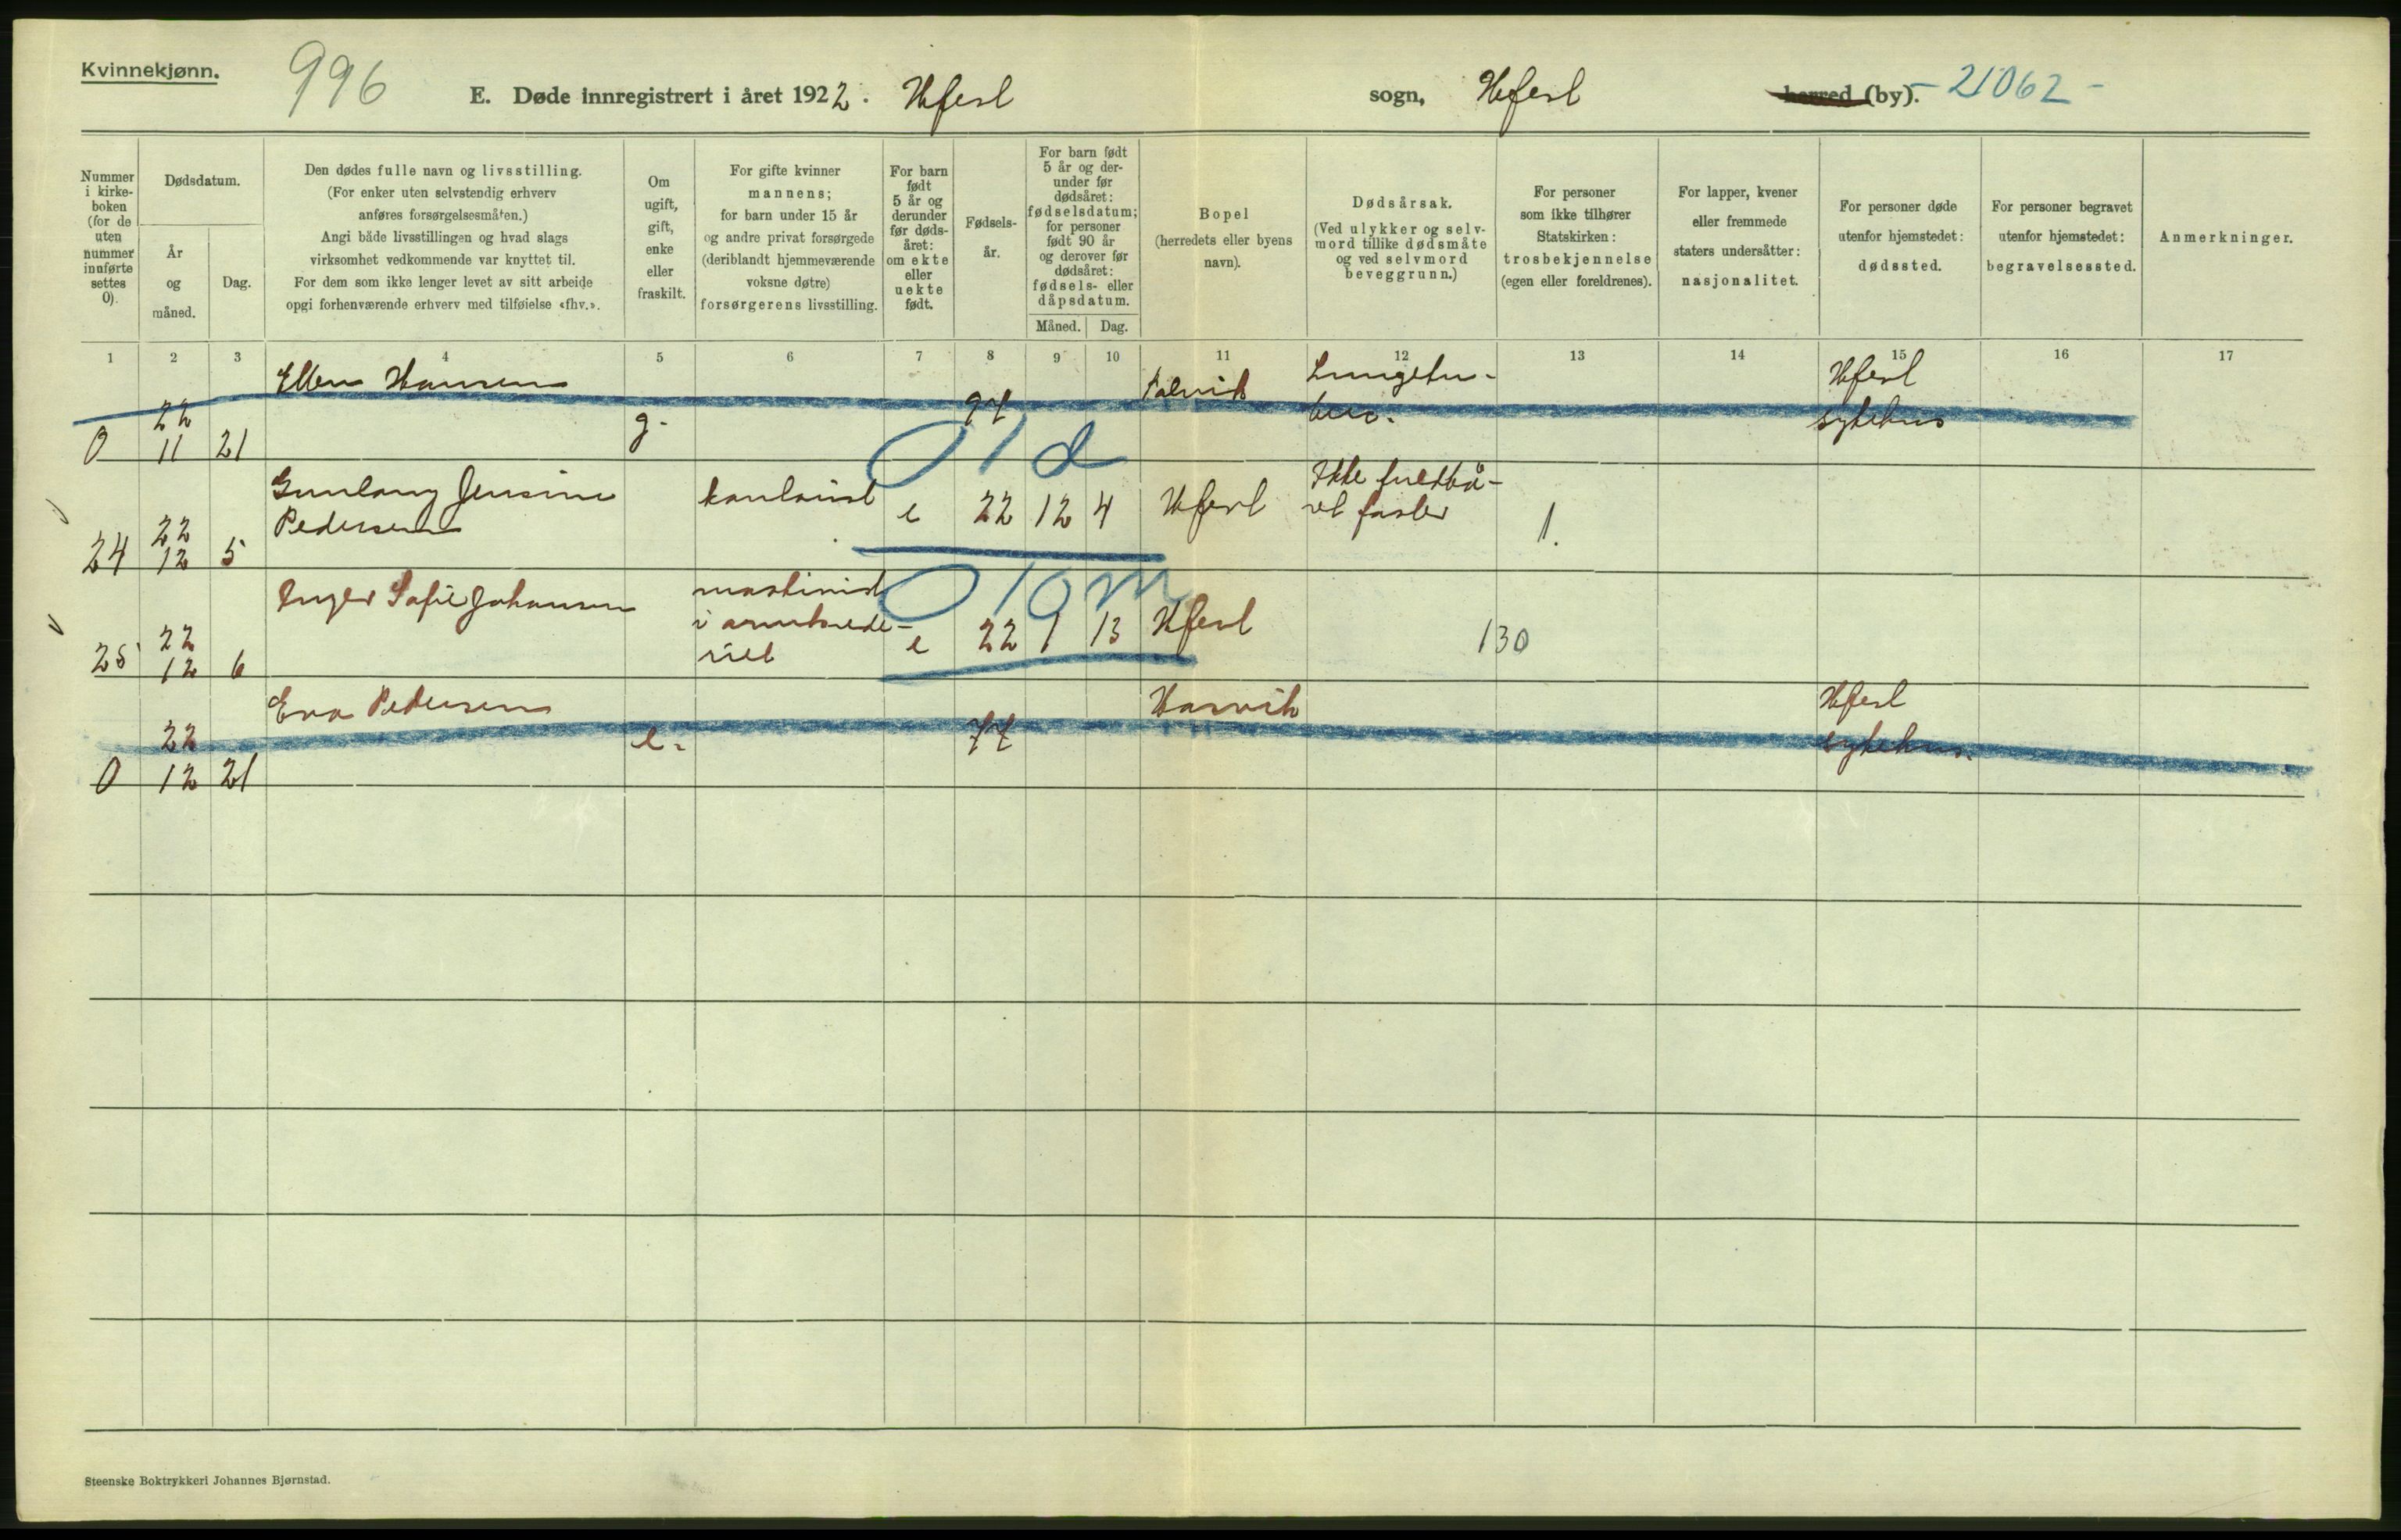 Kvinnekjønn.
996
E. Døde innregistrert i året 1922. Hfest sogn, Hfest herred (by). - 21062 -
Nummer
i kirke-
boken
(for de
uten
nummer
innførte
settes
0).
Dødsdatum.
År
og
måned.
Dag.
Den dødes fulle navn og livsstilling.
(For enker uten selvstendig erhverv
anføres forsørgelsesmåten.)
Angi både livsstillingen og hvad slags
virksomhet vedkommende var knyttet til.
For dem som ikke lenger levet av sitt arbeide
opgi forhenværende erhverv med tilføielse «fhv.».
Om
ugift,
gift,
enke
eller
fraskilt.
For gifte kvinner
mannens;
for barn under 15 år
og andre privat forsørgede
(deriblandt hjemmeværende
voksne døtre)
forsørgerens livsstilling.
For barn
født
5 år og
derunder
før døds-
året:
om ekte
eller
uekte
født.
Fødsels-
år.
For barn født
5 år og der-
under før
dødsåret:
fødselsdatum;
for personer
født 90 år
og derover før
dødsåret:
fødsels- eller
dåpsdatum.
Måned. Dag.
Bopel
(herredets eller byens
navn).
Dødsårsak.
(Ved ulykker og selv-
mord tillike dødsmåte
og ved selvmord
beveggrunn.)
For personer
som ikke tilhører
Statskirken:
trosbekjennelse
(egen eller foreldrenes).
For lapper, kvener
eller fremmede
staters undersåtter:
nasjonalitet.
For personer døde
utenfor hjemstedet:
dødssted.
For personer begravet
utenfor hjemstedet:
begravelsessted.
Anmerkninger.
1 2 3 4 5 6 7 8 9 10 11 12 13 14 15 16 17
Ellen Hansen Talvik Lungetu- Hfest
22 g. 97 berc. sykehus
0 11 21
0 1 d
Gunlaug Jensine kontorist e 22 12 4 Hfest Ikke fuldbå-
Pedersen ret foster 1.
22
24 12 5
0 10 m
Inger Sofie Johansen maskinist
i e 22 1 13 Hfest 130
22
25 12 6
Eva Pedersen Hasvik Hfest
22 e. 77 sykehus.
0 12 21
Steenske Boktrykkeri Johannes Bjørnstad.